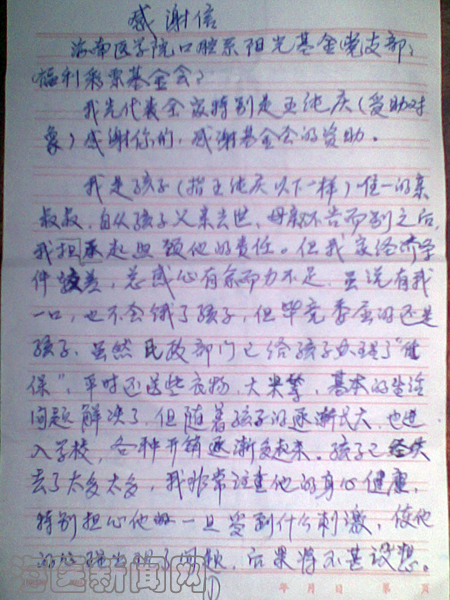 感谢信
海南医学院口腔系阳光基金党支部：
福利彩票基金会：
我先代表全家特别是王纯庆（受助对
象）感谢你们，感谢基金会的资助。
我是孩子（指王纯庆以下一样）唯一的亲
叔叔，自从孩子父亲去世，母亲不告而别之后，
我担承起照顾他的责任。但我家经济条
件较差，总感心有余而力不足，虽说有我
一口，也不会饿了孩子，但毕竟委屈的还是
孩子。虽然民政部门已给孩子办理了“低
保”，平时还送些衣物、大米等，基本的生活
问题解决了，但随着孩子的逐渐长大，也进
入学校，各种开销逐渐多起来。孩子已经失
去了太多太多，我非常注意他的身心健康，
特别担心他一旦受到什么刺激，使他
的心理出现了问题，后果将不甚设想。
年 月 日 第 页